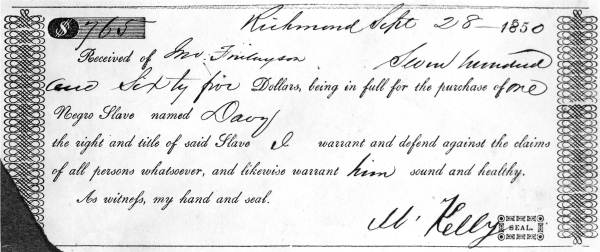 $765
Richmond Sept 28 - 1850
Received of Jno. Finlayson Seven hundred
and Sixty five Dollars, being in full for the purchase of one
Negro Slave named Davy
the right and title of said Slave I warrant and defend against the claims
of all persons whatsoever, and likewise warrant him sound and healthy.
As witness, my hand and seal.
M. Kelly SEAL.